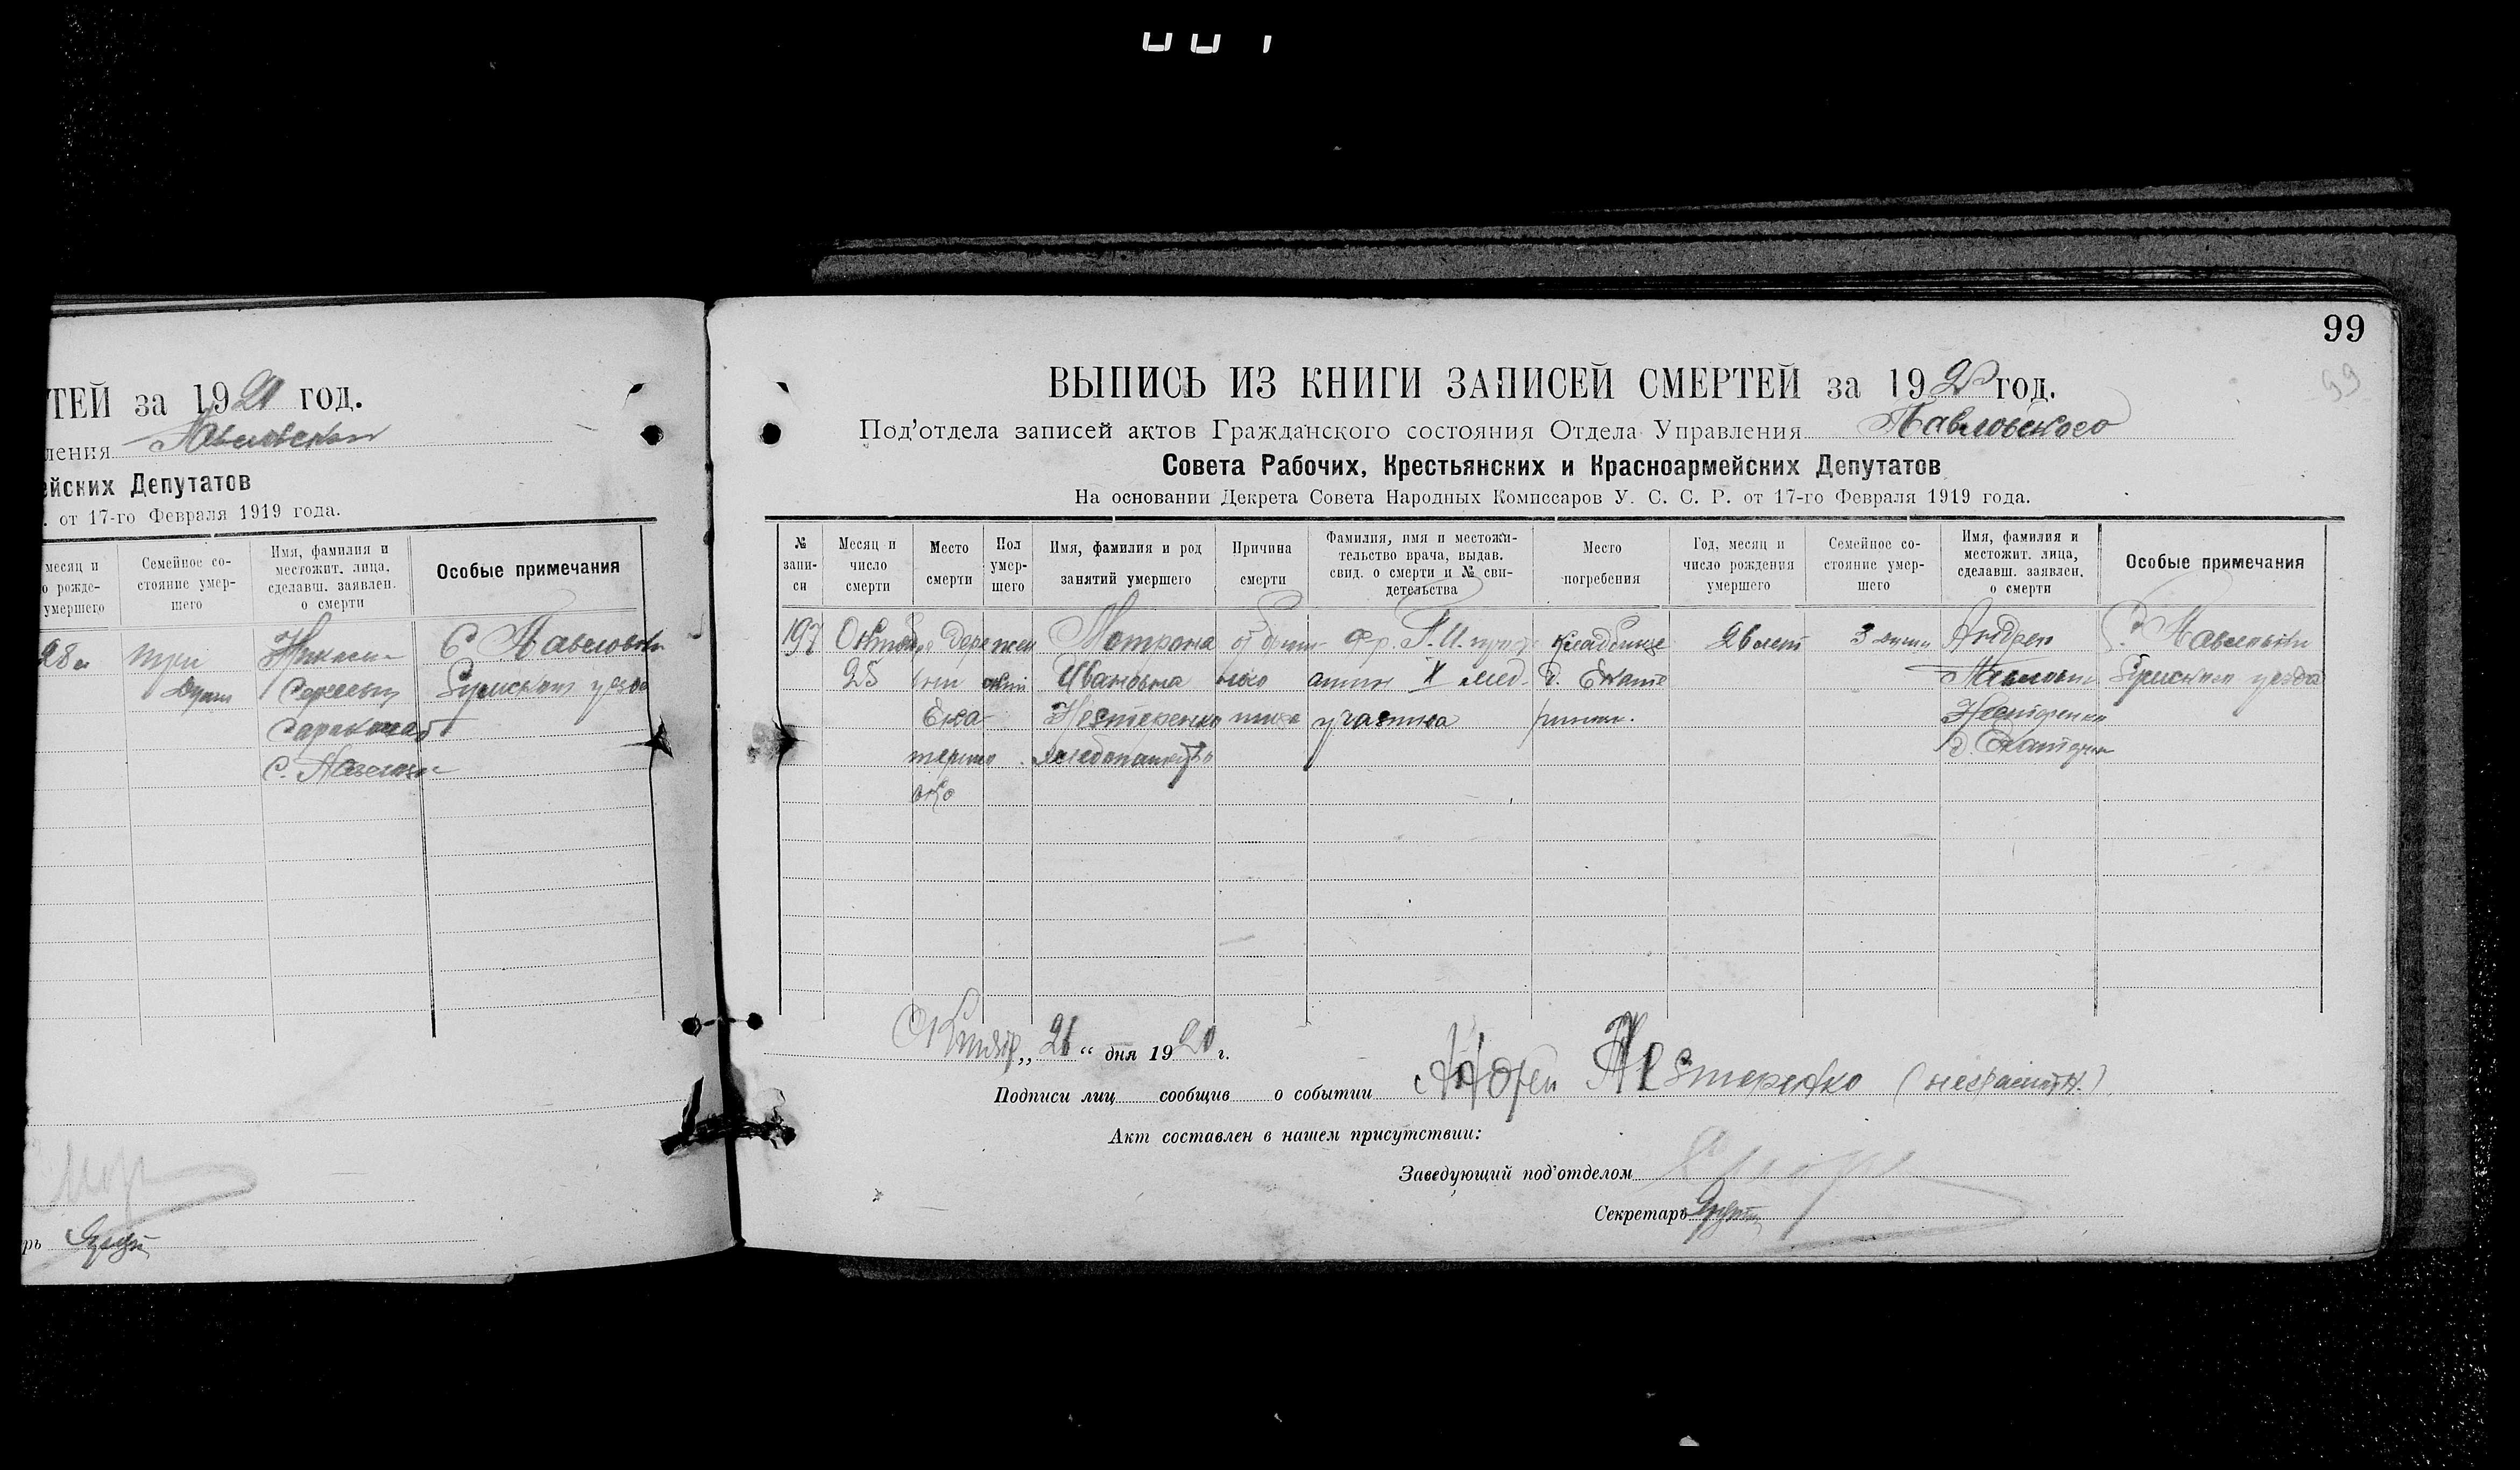 ТЕЙ за 1920 год.
ления
ейских Депутатов
. от 17-го Февраля 1919 года.
месяц и
о рожде-
умершего
Семейное со-
стояние умер-
шего
Имя, фамилия и
местожит. лица,
сделавш. заявлен.
о смерти
Особые примечания
28
три
души
С. Павловки
Сумского уезда
рь
99
99
ВЫПИСЬ ИЗ КНИГИ ЗАПИСЕЙ СМЕРТЕЙ за 1920 год.
Под'отдела записей актов Гражданского состояния Отдела Управления Павловского
Совета Рабочих, Крестьянских и Красноармейских Депутатов
На основании Декрета Совета Народных Комиссаров У. С. С. Р. от 17-го Февраля 1919 года.
№
запи-
си
Месяц и
число
смерти
Место
смерти
Пол
умер-
шего
Имя, фамилия и род
занятий умершего
Причина
смерти
Фамилия, имя и местожи-
тельство врача, выдав.
свид. о смерти и № сви-
детельства
Место
погребения
Год, месяц и
число рождения
умершего
Семейное со-
стояние умер-
шего
Имя, фамилия и
местожит. лица,
сделавш. заявлен.
о смерти
Особые примечания
197
Октября
25
Дерев
Ека
терино
вка
жен
ский
Матрона
Ивановна
Нестеренко
хлебопашество
участка
кладбище
д. Екате
26 лет
3 души
Андрей
Павлович
Нестеренко
д. Екатерин
С. Павловки
Сумского уезда
Октября „ 26 “ дня 1920 г.
Подписи лиц сообщив о событии Андрей Нестеренко (неграмотн.)
Акт составлен в нашем присутствии:
Заведующий под'отделом
Секретарь